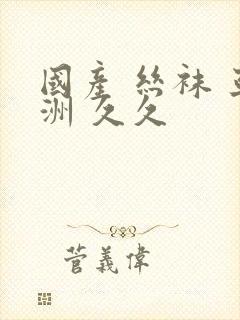 國產 絲袜
洲 久久
菅義偉